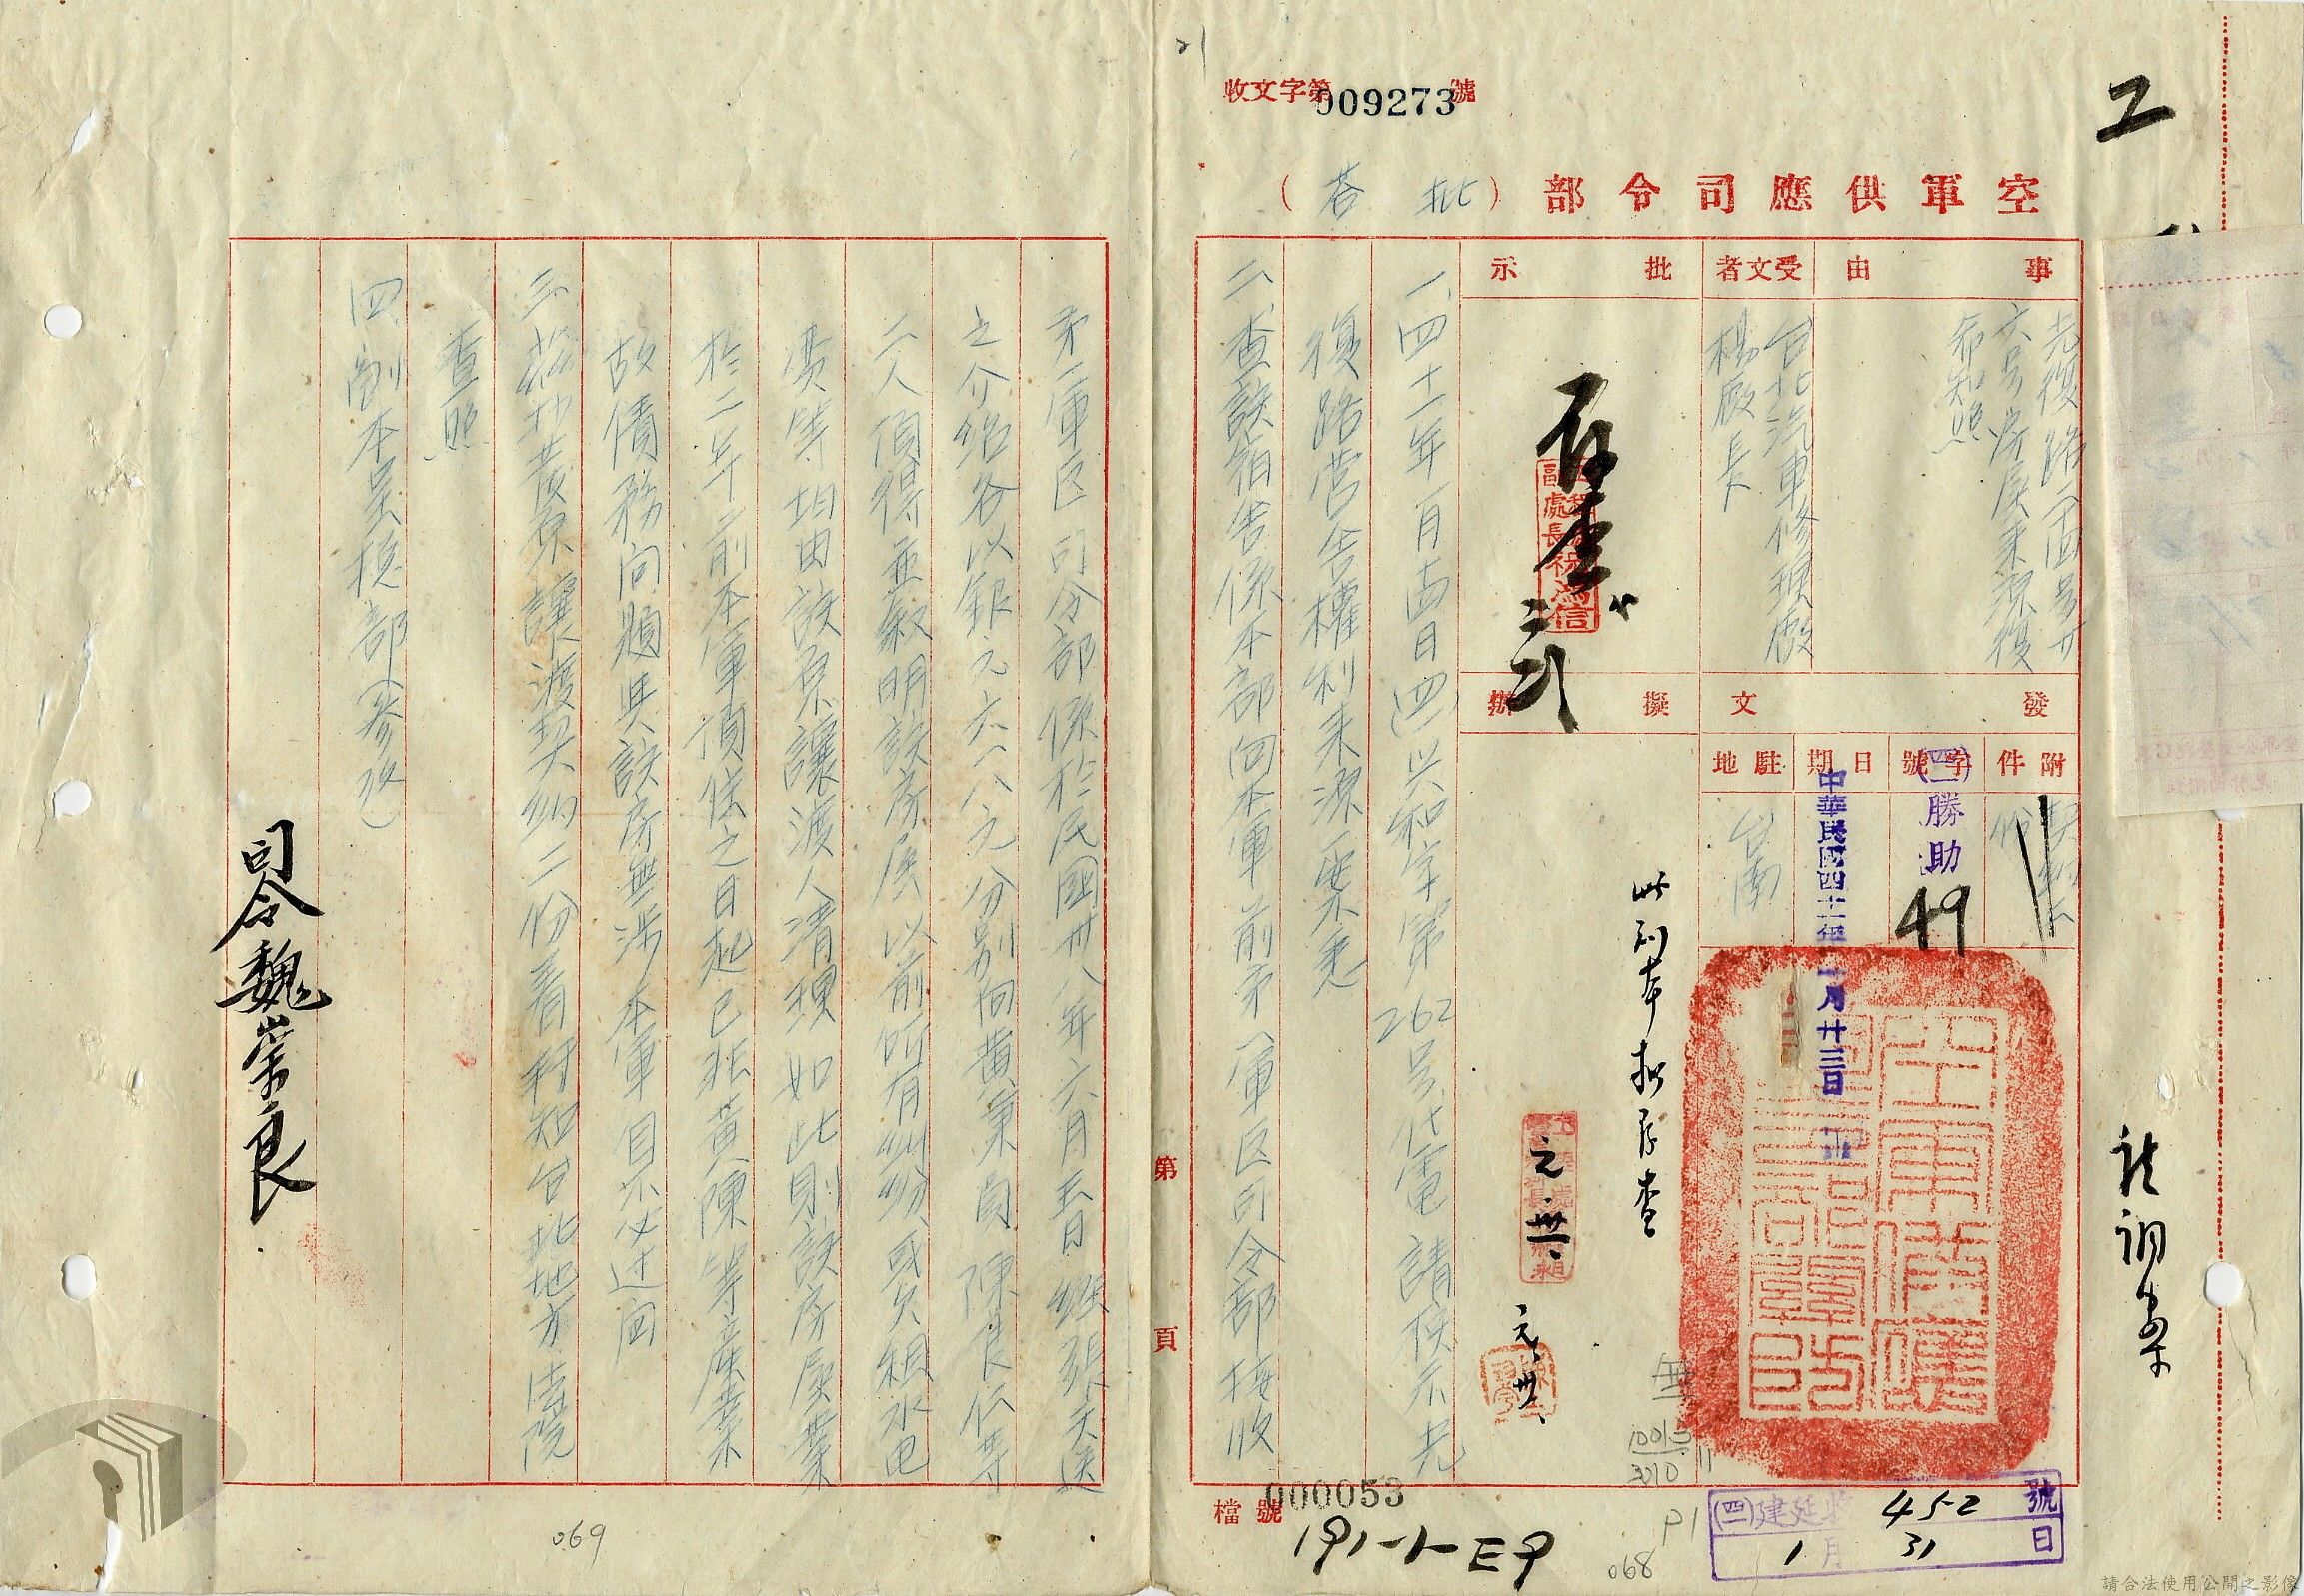 收文字第009273號
工
空軍供應司令部（批答）
事由
光復路六四号廿
六号房屋來源復
希知照
受文者
台北汽車修理廠
楊廠長
批示
存查
副處長祝為信
擬辦
此副本擬存查
元卅
元卅
發文
附件
字號
(四一)勝助49
日期
中華民國四十一年一月廿三日
駐地
台南
一、四十一年一月十四日(四一)兴和字第262号代電請核示光
復路营舍權利來源一案奉悉
二、查該宿舍係本部向本軍前第一軍区司令部接收
第一軍区司令部係於民國卅八年六月廿日經張天送
之介紹各以銀元六六八元分別向黃秉貞陳良仁等
二人頂得並敘明該房屋以前所有糾紛或欠租水电
費等均由該原讓渡人清理如此則該房屋業
於二年前本軍頂住之日起已非黃陳等產業
故債務问題與該房無涉本軍自不必过问
三、茲抄发原讓渡契約二份着利知台北地方法院
查照
四、副本呈總部（參攷）
司令魏崇良
第 頁
檔號
000053
191-1-E9
(四一)建延收 452 號
1月 31 日
068
069
P1
21
請合法使用公開之影像